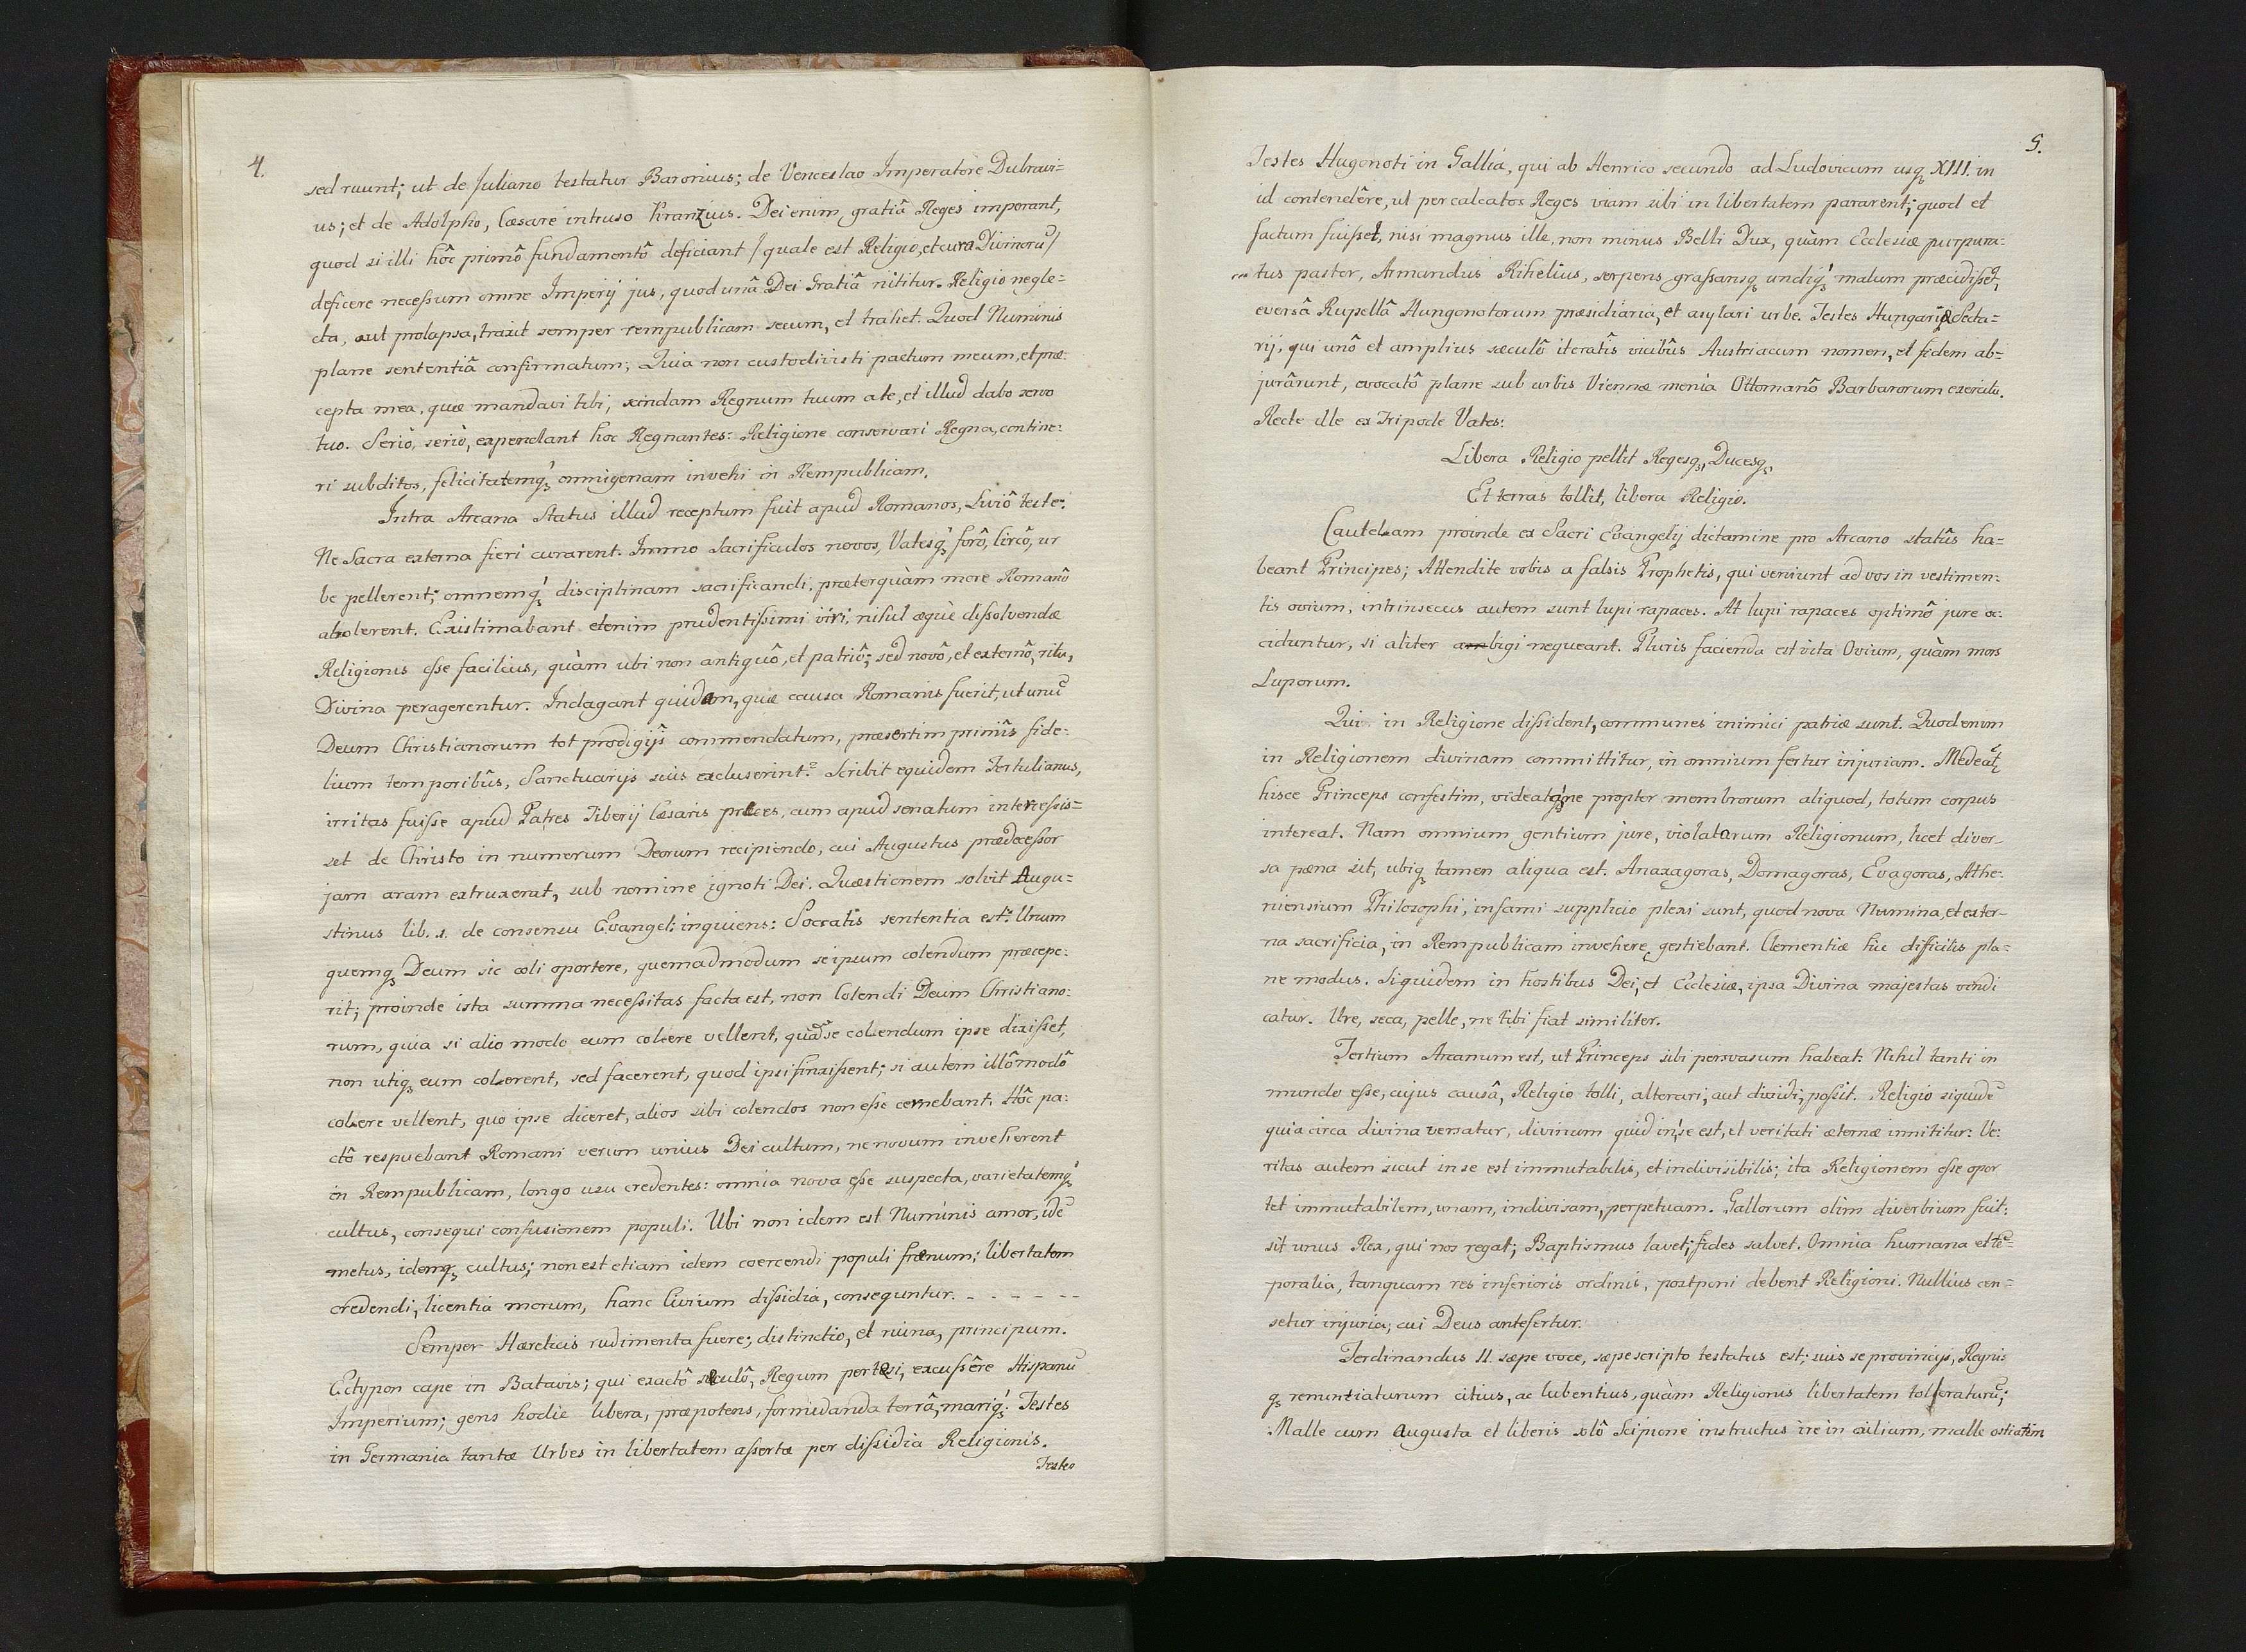 4.
sed ruunt; ut de Juliano testatur Baronius; de Venceslao Imperatore Dubravi=
us; et de Adolpho, Cæsare intruso Kranzius. Dei enim gratiâ Reges imperant,
quod si illi hôc primô fundamentô deficiant / quale est Religio, et cura Divinorū /
deficere necessum omne Imperij jus, quod unâ Dei Gratiâ nititur. Religio negle=
cta, aut prolapsa, traxit semper rempublicam secum, et trahet. Quod Numinis
plane sententiâ confirmatum; Quia non custodivisti pactum meum, et præ=
cepta mea, quæ mandavi tibi, scindam Regnum tuum a te, et illud dabo servo
tuo. Seriò, seriò, expendant hoc Regnantes: Religione conservari Regna, contine=
ri subditos, felicitatemq́ʒ omnigenam invehi in Rempublicam.
Intra Arcana Status illud receptum fuit apud Romanos, Liviô teste:
Ne Sacra externa fieri curarent. Immo Sacrificulos novos, Vatesq́ʒ forô, Circô, ur
be pellerent; omnemq́ʒ disciplinam sacrificandi, præterquàm more Romanô
abolerent. Existimabant etenim prudentissimi viri, nihil æquè dissolvendæ
Religionis esse facilius, quàm ubi non antiquô, et patriô; sed novô, et externô, ritu,
Divina peragerentur. Indagant quidam, quæ causa Romanis fuerit, ut unū
Deum Christianorum tot prodigijs commendatum, præsertim primîs fide=
lium temporibûs, Sanctuarijs suis excluserint? Scribit equidem Tertulianus,
irritas fuisse apud Patres Tiberij Cæsaris preces, cum apud senatum intercessis=
set de Christo in numerum Deorum recipiendo, cui Augustus prædecessor
jam aram extruxerat, sub nomine ignoti Dei. Quæstionem solvit Augu=
stinus lib. 1. de consensu Evangel: inquiens: Socratis sententia est: Unum
quemqʒ Deum sic coli oportere, quemadmodum se ipsum colendum præcepe=
rit; proinde ista summa necessitas facta est, non Colendi Deum Christiano=
rum, quia si alio modo eum colere vellent, quā se colendum ipse dixisset,
non utiqʒ eum colerent, sed facerent, quod ipsi finxissent; si autem illô modô
colere vellent, quo ipse diceret, alios sibi colendos non esse cernebant. Hôc pa=
ctô respuebant Romani verum unius Dei cultum, ne novum inveherent
in Rempublicam, longo usu credentes: omnia nova esse suspecta, varietatemq́ʒ
cultus, consequi confusionem populi. Ubi non idem est Numinis amor, idē
metus, idemqʒ cultus; non est etiam idem coercendi populi frænum; libertatem
credendi, licentia morum, hanc Civium dissidia, consequntur. - - - - - -
Semper Hæreticis rudimenta fuere; distinctio, et ruina, principum.
Ectypon cape in Batavis; qui exactô sæculô, Regum pertæsi, excussêre Hispanū
Imperium; gens hodie libera, præpotens, formidanda terrâ, mariq́ʒ. Testes
in Germania tantæ Urbes in libertatem assertæ per dissidia Religionis.
Testes
5.
Testes Hugonoti in Galliâ, qui ab Henrico secundo ad Ludovicum usqʒ XIII. in
id contendêre, ut per calcatos Reges viam sibi in libertatem pararent; quod et
factum fuisset, nisi magnus ille, non minus Belli Dux, quàm Ecclesiæ purpura=
tus pastor, Armandus Rihelius, serpens grassansqʒ undiq́ʒ malum præcidisset,
eversâ Rupellâ Hungonotorum præsidiaria, et asylari urbe. Testes Hungariæ Secta=
rij, qui unô et amplius sæculô iteratîs vicibûs Austriacum nomen, et fidem ab=
jurârunt, evocatô plane sub urbis Viennæ mænia Ottomanô Barbarorum exercitu.
Recte ille ex Tripode Vates:
Libera Religio pellit Regesqʒ, Ducesqʒ,
Et terras tollit, libera Religio.
Cautelam proinde ex Sacri Evangelij dictamine pro Arcano statûs ha=
beant Principes; Attendite vobis a falsis Prophetis, qui veniunt ad vos in vestimen=
tis ovium, intrinsecus autem sunt lupi rapaces. At lupi rapaces optimô jure oc=
ciduntur, si aliter abigi nequeant. Pluris facienda est vita Ovium, quàm mors
Luporum.
Qui in Religione dissident, communes inimici patriæ sunt. Quod enim
in Religionem divinam committitur, in omnium fertur injuriam. Medeat̃
hisce Princeps confestim, videatq́ʒ ne propter membrorum aliquod, totum corpus
intereat. Nam omnium gentium jure, violatarum Religionum, licet diver=
sa pæna sit, ubiqʒ tamen aliqua est. Anaxagoras, Domagoras, Evagoras, Athe=
niensium Philosophi, infami supplicio plexi sunt, quod nova Numina, et exter=
na sacrificia, in Rempublicam invehere gestiebant. Clementiæ hic difficilis pla=
ne modus. Siquidem in hostibus Dei, et Ecclesiæ, ipsa Divina majestas vindi
catur. Ure, seca, pelle, ne tibi fiat similiter.
Tertium Arcanum est, ut Princeps sibi persvasum habeat: Nihil tanti in
mundo esse, cujus causâ, Religio tolli, alterari, aut dividi, possit. Religio siquidē
quia circa divina versatur, divinum quid in se est, et veritati æternæ innititur: Ve=
ritas autem sicut in se est immutabilis, et indivisibilis; ita Religionem esse opor
tet immutabilem, unam, indivisam, perpetuam. Gallorum olim diverbium fuit:
sit unus Rex, qui nos regat; Baptismus lavet; fides salvet. Omnia humana et tē=
poralia, tanquam res inferioris ordinis, postponi debent Religioni. Nullius cen=
setur injuria, cui Deus antefertur.
Ferdinandus II. sæpe voce, sæpe scripto testatus est; suis se provincijs, Regnis
qʒ renuntiaturum citius, ac lubentius, quàm Religionis libertatem toleraturū;
Malle cum Augusta et liberis solô Scipione instructus ire in exilium, malle ostiatim